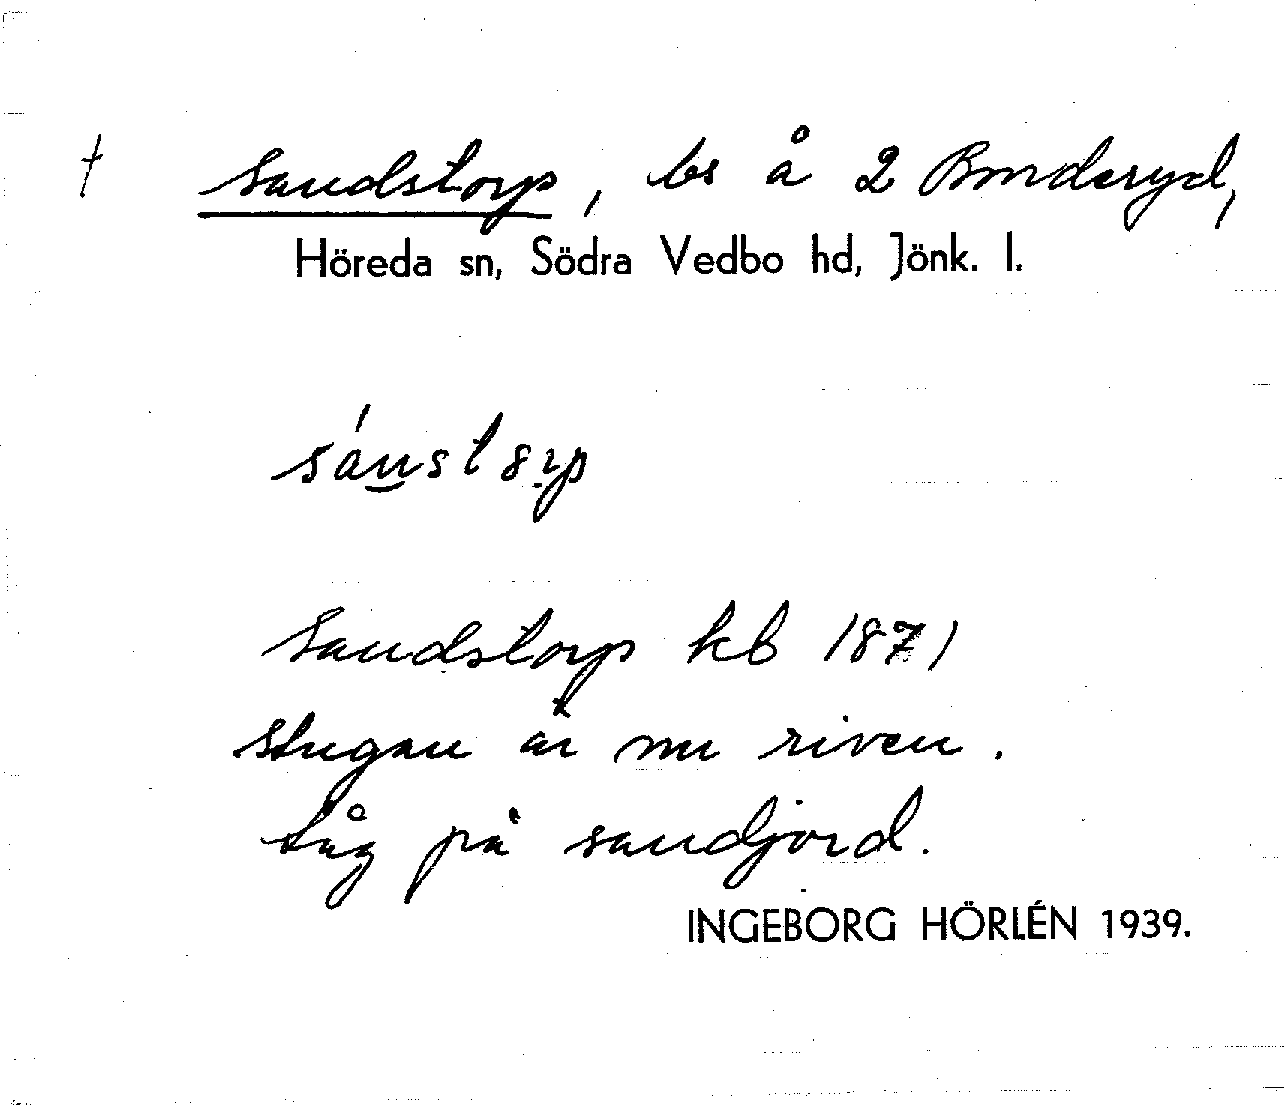 † Sandstorp, bs å 2 Bonderyd,
Höreda sn, Södra Vedbo hd, Jönk. l.
Sandstorp kb 1871
Stugan är nu riven.
Låg på sandjord.
INGEBORG HÖRLÉN 1939.